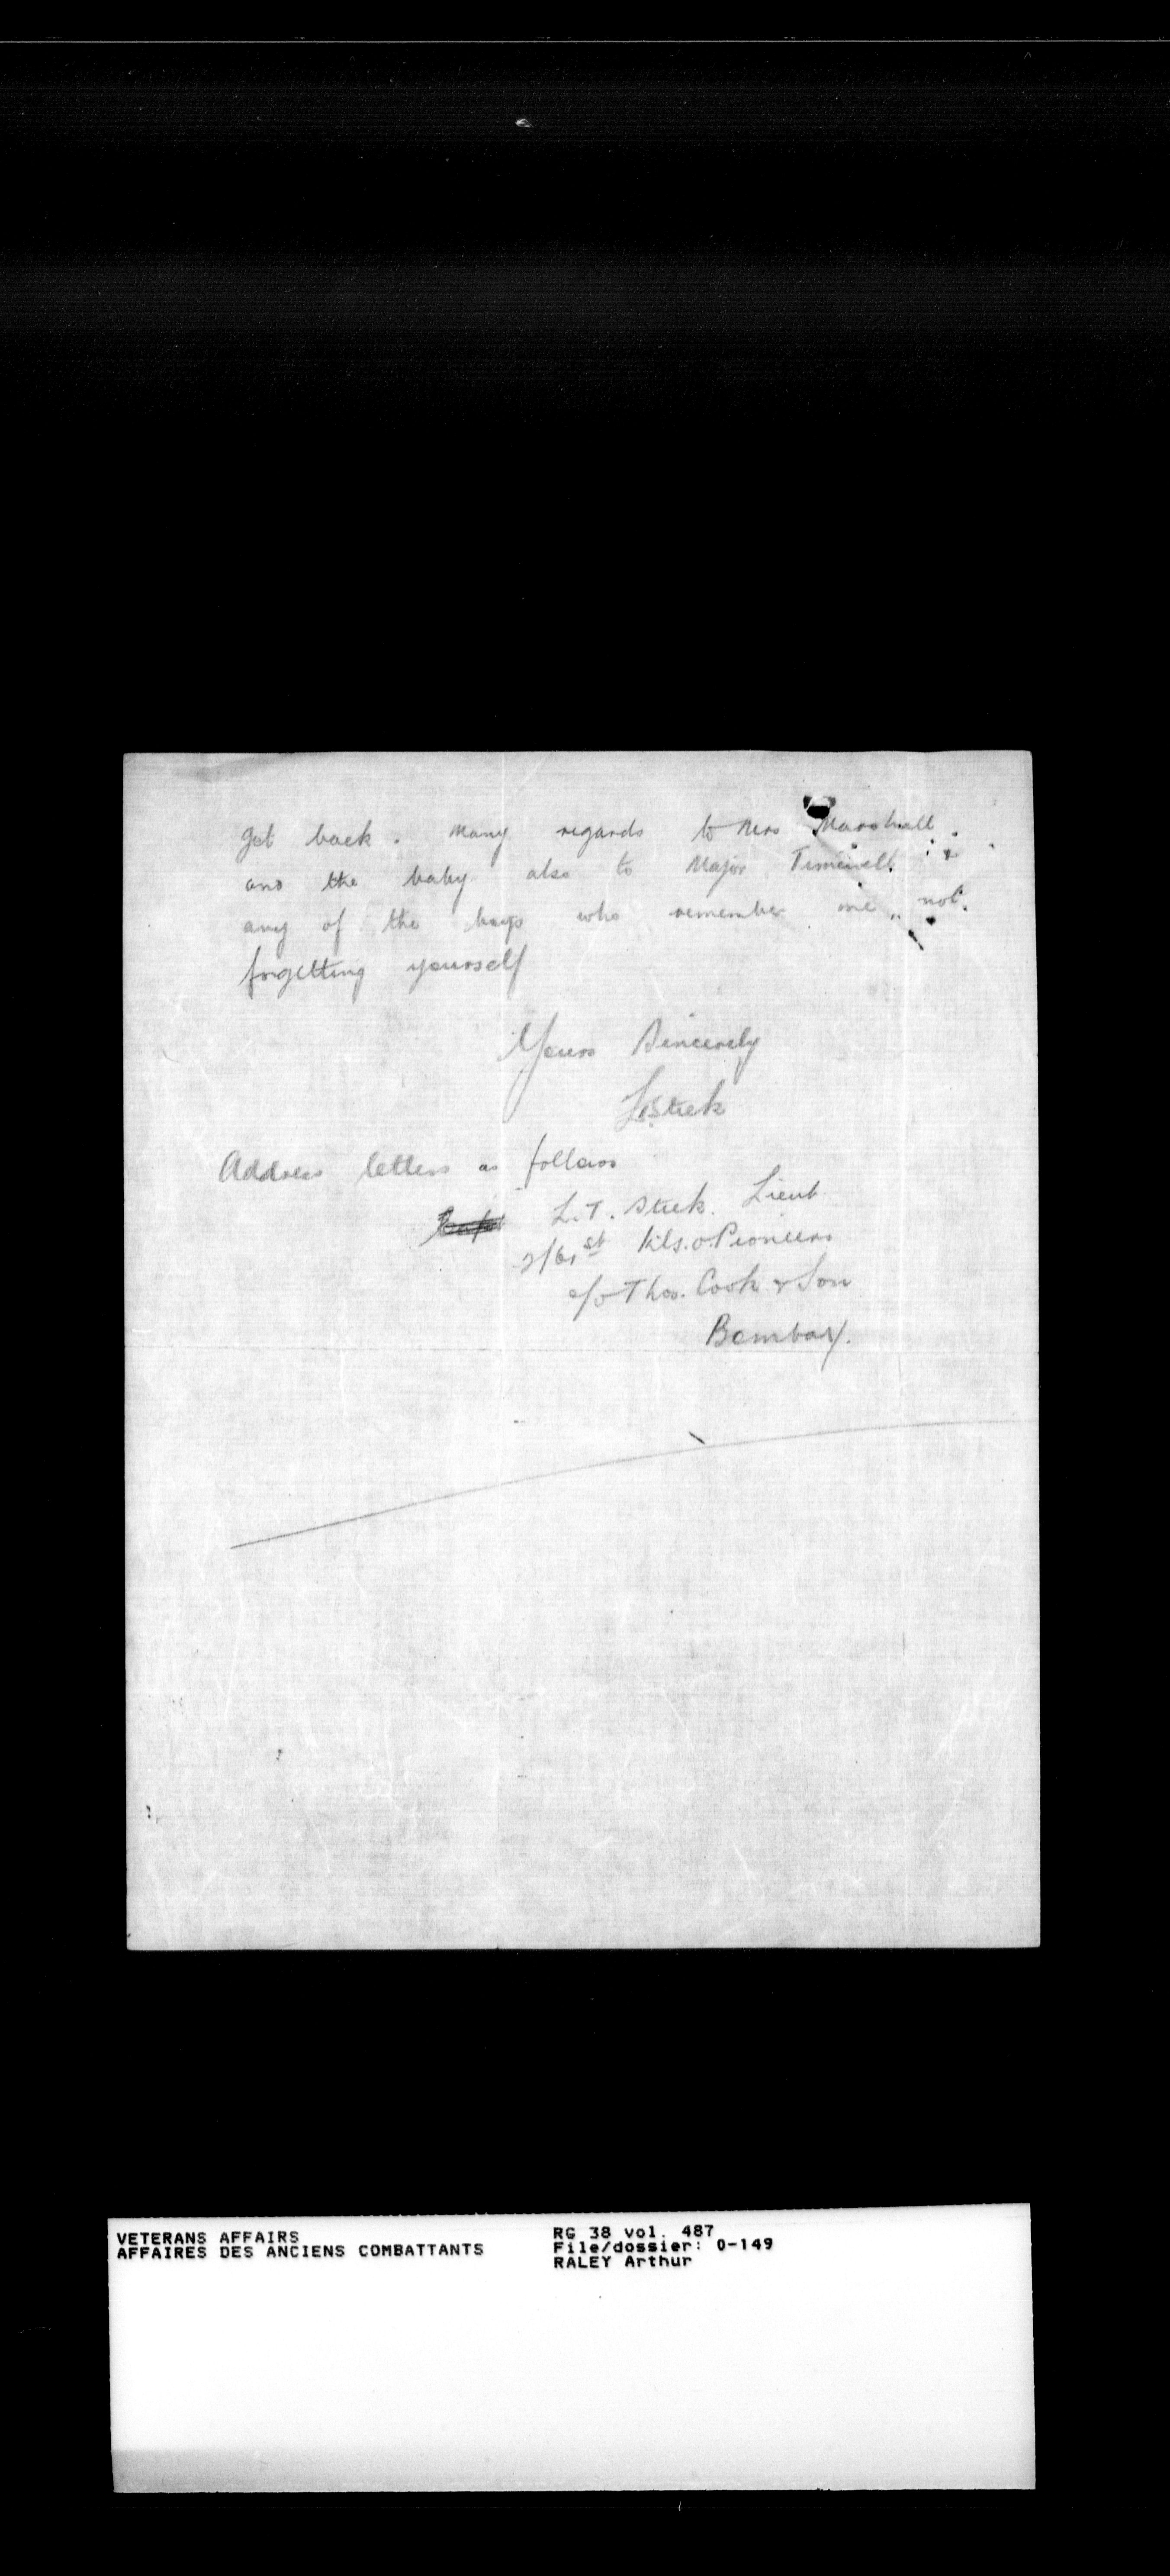 get back. Many regards to Mrs Marshall
and the baby also to Major Timewell &
any of the boys who remember me, not
forgetting yourself
Yours Sincerely
L Stick
Address letters as follows
L.T. Stick. Lieut
2/61st K.G.O. Pioneers
c/o Thos. Cook & Son
Bombay.
VETERANS AFFAIRS
AFFAIRES DES ANCIENS COMBATTANTS
RG 38 vol. 487
File/dossier: 0-149
RALEY Arthur